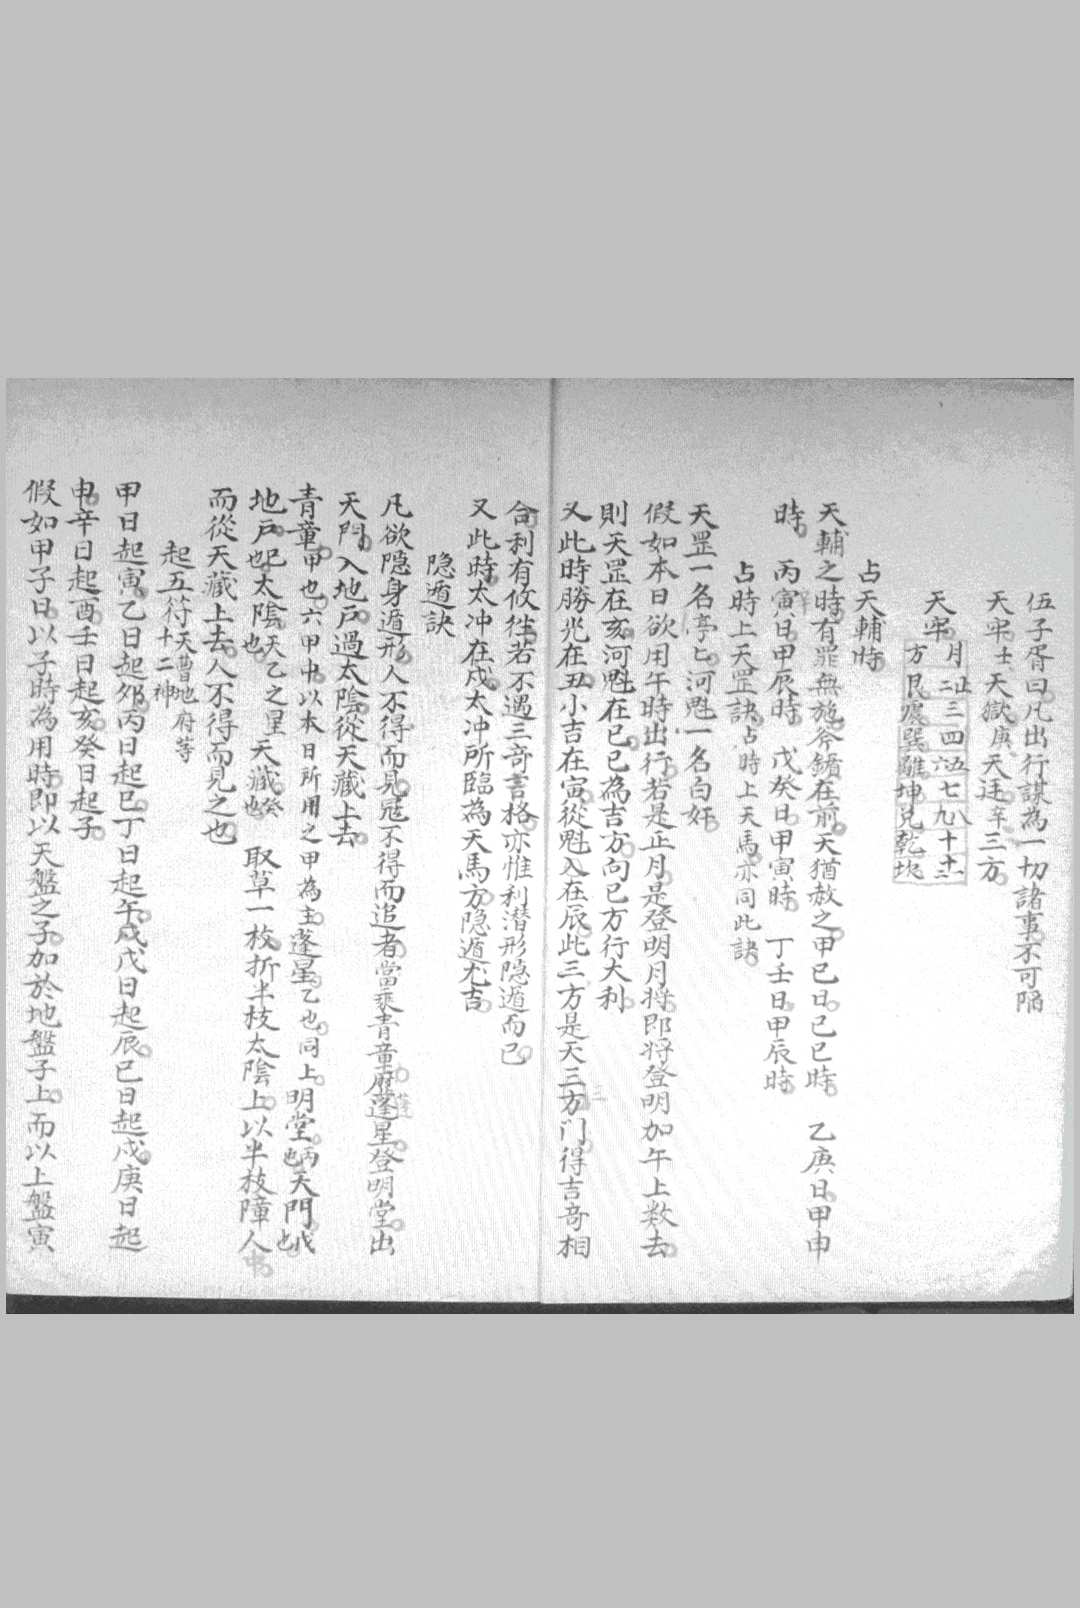 伍子胥曰凡出行謀為一切諸事不可陷
天牢壬天獄庚天廷辛三方
天牢
月 正二 三 四 五六 七 八九 十 十一十二
方 艮 震 巽 離 坤 兌 乾 坎
占天輔時
天輔之時有罪無施斧鑕在前天猶赦之甲已日己巳時 乙庚日甲申
時 丙寅日甲辰時 戊癸日甲寅時 丁壬日甲辰時
占時上天罡訣占時上天馬亦同此訣
天罡一名亭亡河魁一名白奸
假如本日欲用午時出行若是正月是登明月將即將登明加午上数去
則天罡在亥河魁在巳巳為吉方向巳方行大利
又此時勝光在丑小吉在寅從魁入在辰此三方是天三方门得吉奇相
合利有攸徃若不遇三奇吉格亦惟利潛形隐遁而已
又此時太冲在戍太冲所臨為天馬方隐遁尤吉
隐遁訣
凡欲隐身遁形人不得而見冦不得而追者當乘青童歷蓬星登明堂出
天門入地戶過太陰從天藏上去
青童甲也六甲中以本日所用之甲為主蓬星乙也同上明堂丙也天門戊也
地戶己也太陰天乙之星也 天藏癸也 取草一枝折半枝太陰上以半枝障人中
而從天藏上去人不得而見之也
起五符天曹地府等十二神
甲日起寅乙日起夘丙日起巳丁日起午戊戊日起辰巳日起戍庚日起
申辛日起酉壬日起亥癸日起子
假如甲子日以子時為用時即以天盤之子加於地盤子上而以上盤寅